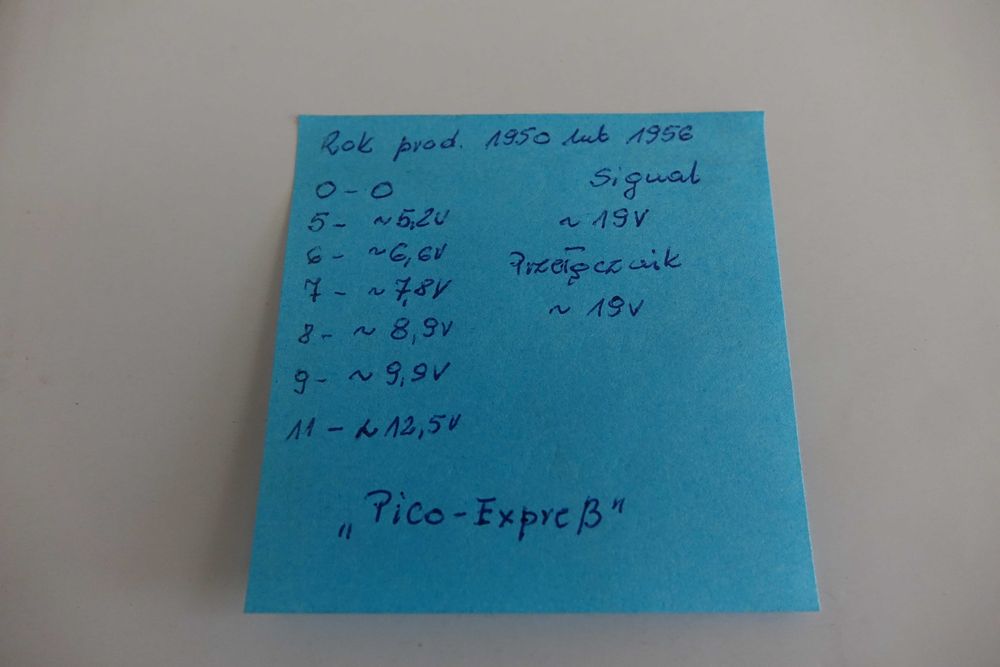 Rok prod. 1950 lub 1956
0 - 0
5 - ~5,2V
6 - ~6,6V
7 - ~7,8V
8 - ~ 8,9V
9 - ~ 9,9V
11 - ~12,5V
Signal
~ 19V
Przełącznik
~ 19V
„Pico-Expreß"